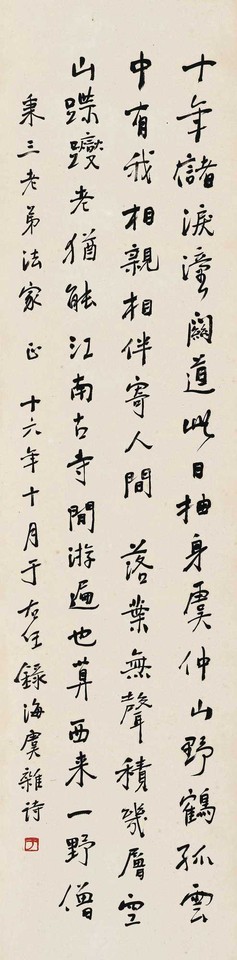 十年儲淚潼關道此日抽身虞仲山野鶴孤雲
中有我相親相伴寄人間 落葉無聲積幾層空
山躞蹀老猶能江南古寺閒游遍也算西来一野僧
秉三老弟法家 正 十六年十月于右任錄海虞雜詩